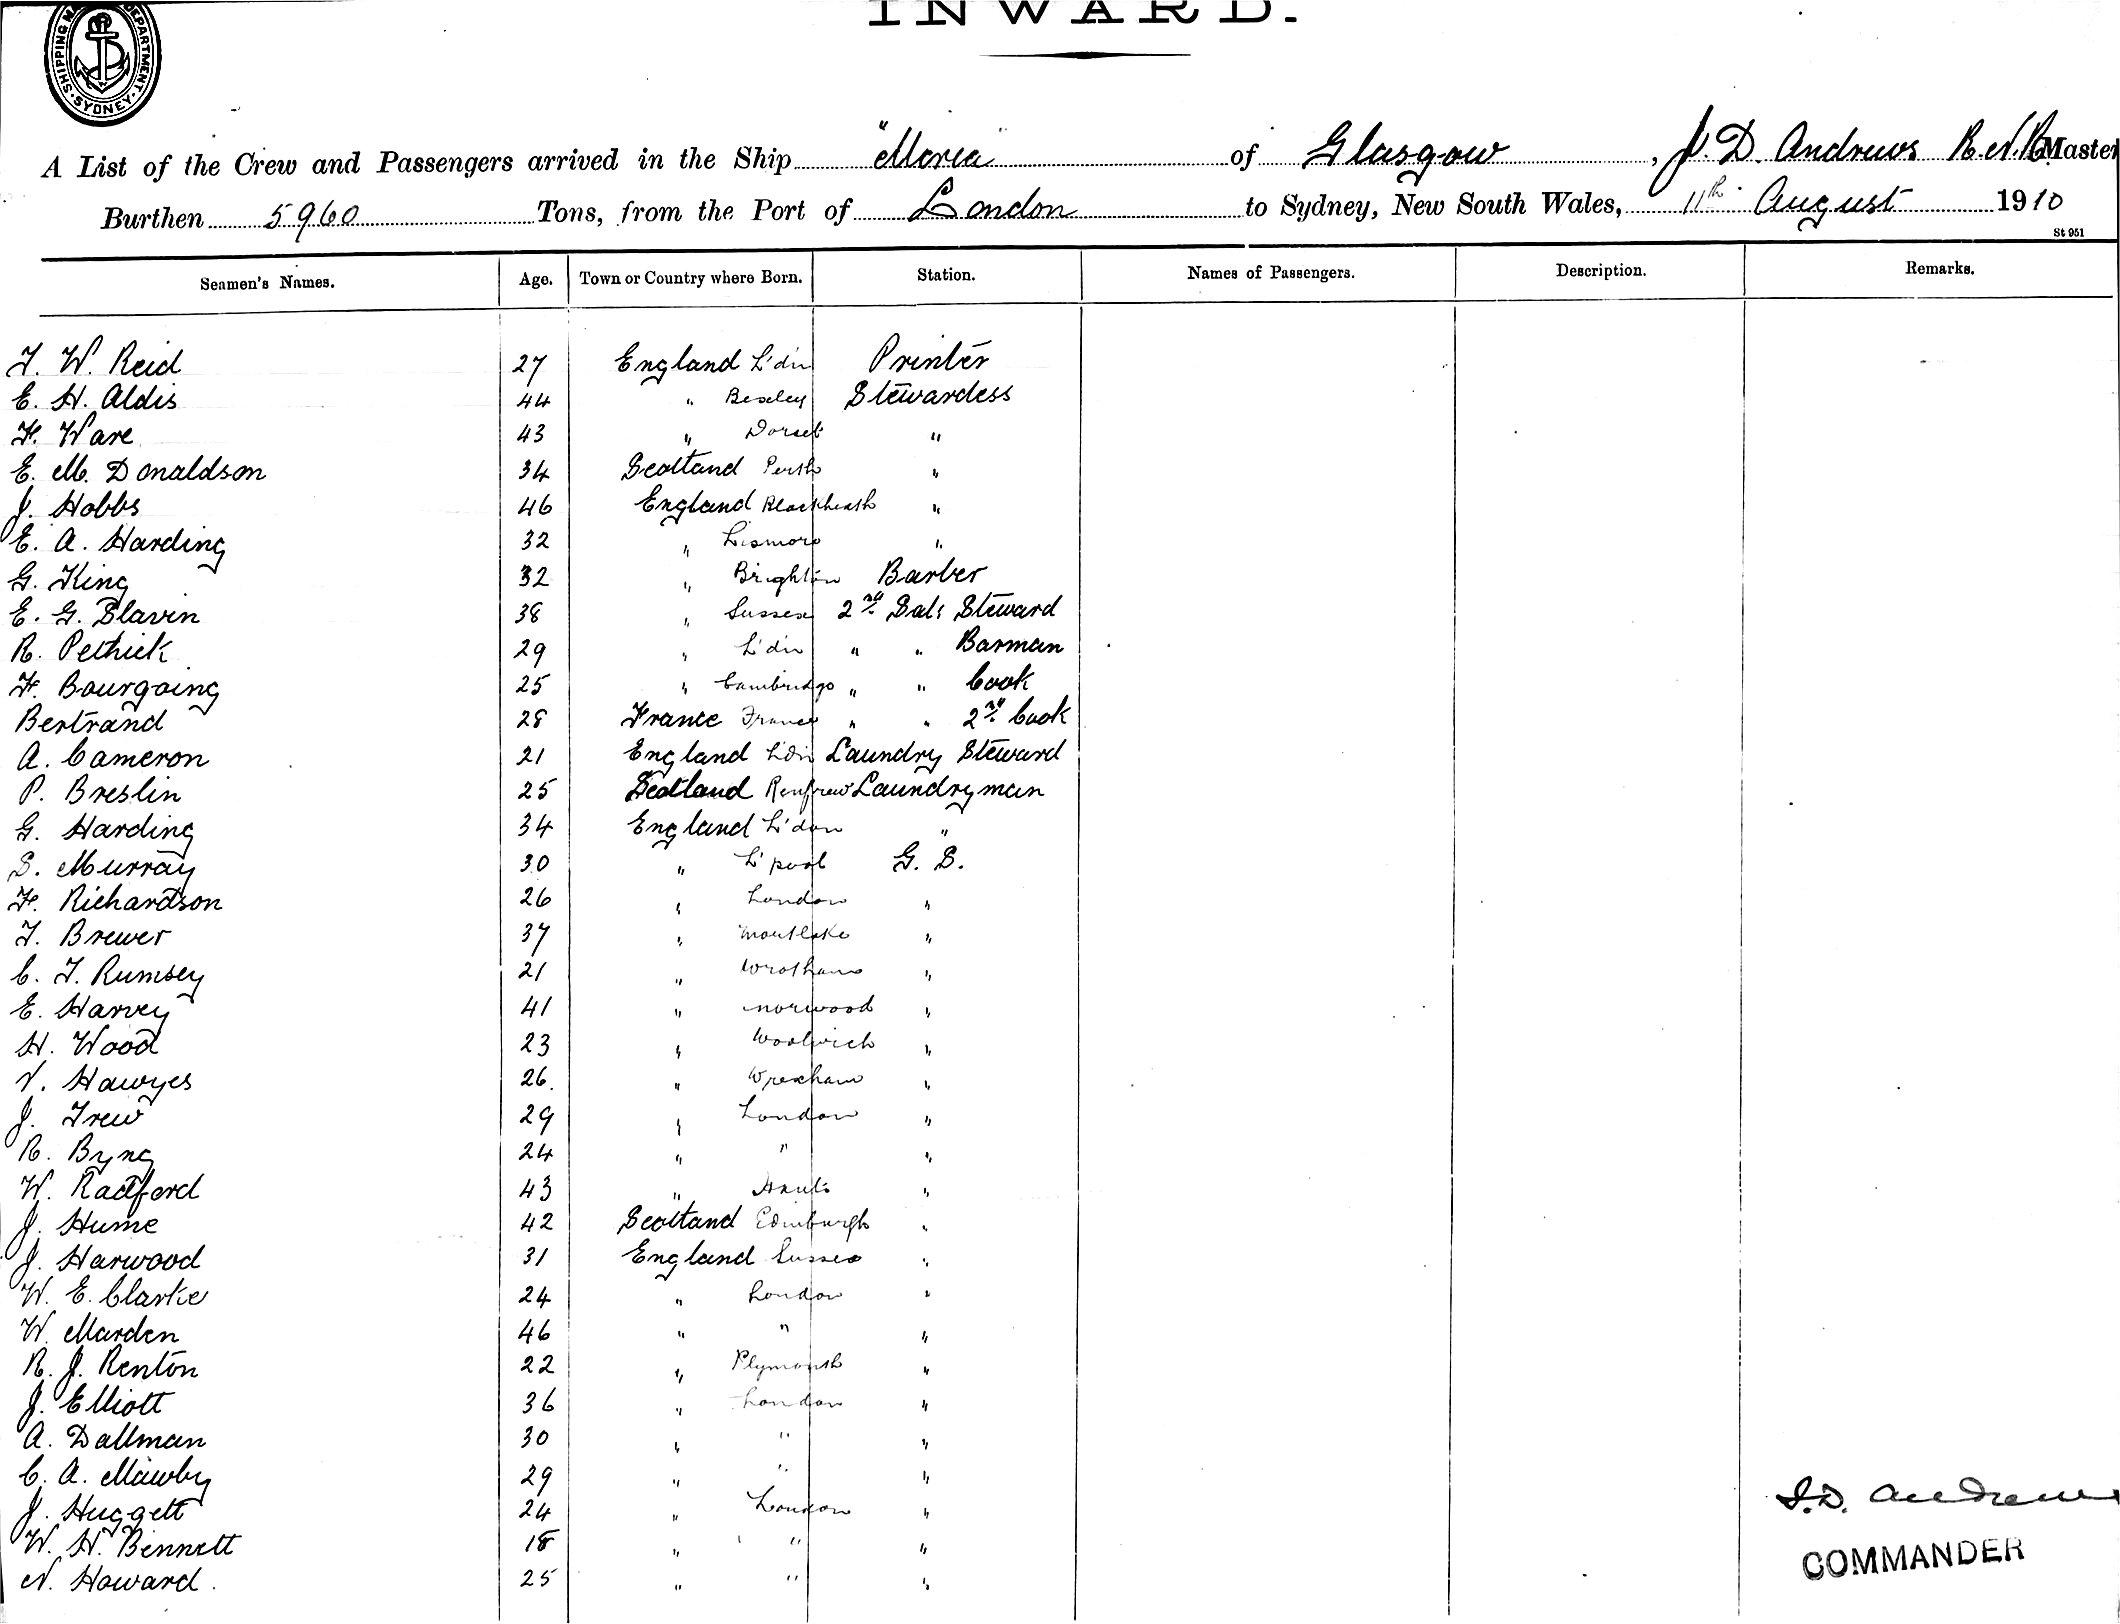 INWARD.
SHIPPING MA DEPARTMENT SYDNEY
A List of the Crew and Passengers arrived in the Ship "Morea" of Glasgow, J. D. Andrews R.N.R. Master
Burthen 5960 Tons, from the Port of London to Sydney, New South Wales, 11th August 1910
St 951
Seamen's Names. Age. Town or Country where Born. Station. Names of Passengers. Description. Remarks.
T. W. Reid 27 England L'dn Printer
E. H. Aldis 44 " Bexley Stewardess
F. Ware 43 " Dorset "
E. M. Donaldson 34 Scotland Perth "
J. Hobbs 46 England Blackheath "
E. A. Harding 32 " Lismore "
G. King 32 " Brighton Barber
E. G. Slavin 38 " Sussex 2nd Sal: Steward
R. Pethick 29 " L'dn " " Barman
F. Bourgoing 25 " Cambridge " " Cook
Bertrand 28 France France " " 2nd Cook
A. Cameron 21 England L'dn Laundry Steward
P. Breslin 25 Scotland Renfrew Laundryman
G. Harding 34 England L'don "
S. Murray 30 " L'pool G. S.
F. Richardson 26 " London "
T. Brewer 37 " Mortlake "
C. T. Rumsey 21 " Wrotham "
E. Harvey 41 " Norwood "
H. Wood 23 " Woolwich "
V. Hawyes 26. " Wrexham "
J. Trew 29 " London "
R. Byng 24 " " "
W. Radford 43 " Hants "
J. Hume 42 Scotland Edinburgh "
J. Harwood 31 England Sussex "
W. E. Clarke 24 " London "
W. Marden 46 " " "
R. J. Renton 22 " Plymouth "
J. Elliott 36 " London "
A. Dallman 30 " " "
C. A. Mawby 29 " " "
J. Huggett 24 " London "
W. H. Bennett 18 " " "
N. Howard. 25 " " "
J.D. Andrews
COMMANDER